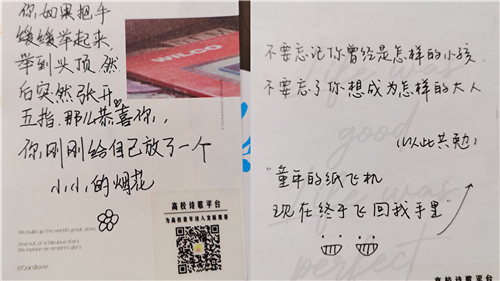 你,如果把手
缓缓举起来,
举到头顶,然
后突然张开
五指,那么恭喜你,,
你刚刚给自己放了一个
小小的烟花
WILCO
We build up the world's great cities,
And out of a fabulous story
We fashion an empire's glory.
高校诗歌平台
为高校青年诗人发展服务
不要忘记你曾经是怎样的小孩,
不要忘了你想成为怎样的大人
(以此共勉)
good
"童年的纸飞机
现在终于飞回我手里"
was
perfect
高校诗歌